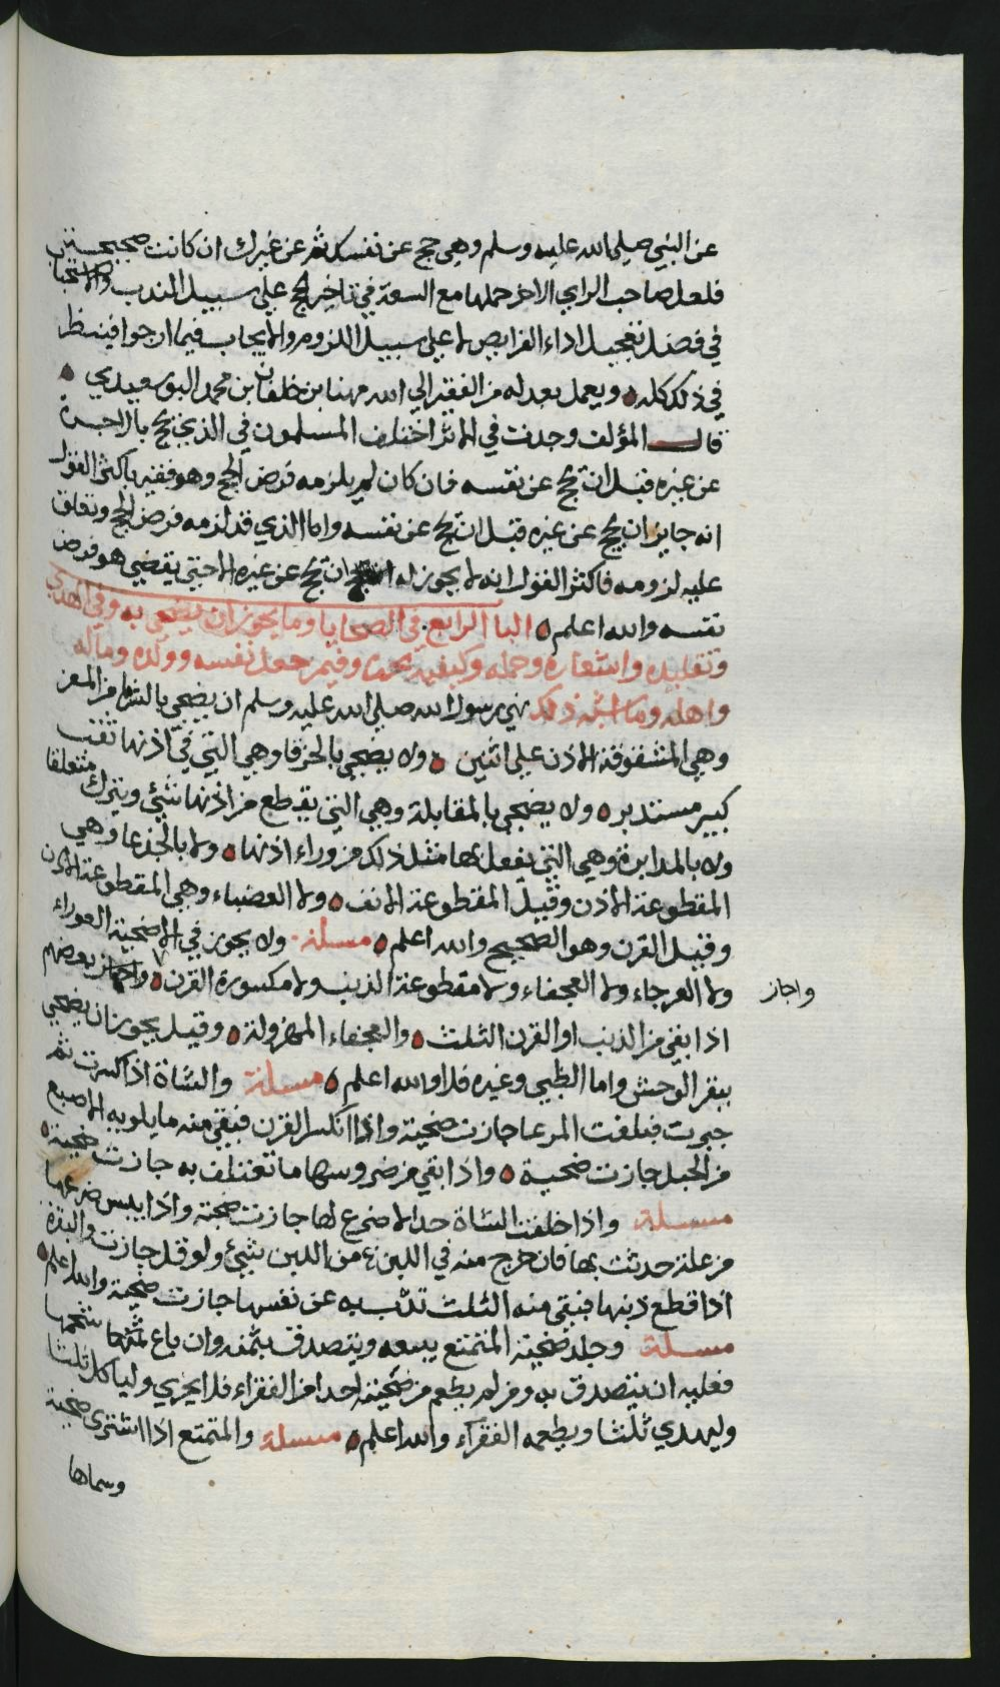 عن النبي صلى الله عليه وسلم وهي حج عن نفسك ثم عن غيرك ان كانت صحيحة
فلعل صاحب الراي الاخر حملها مع السعة في تاخير الحج على سبيل الندب والاستحباب
في فضل تعجيل اداء الفرايض لا على سبيل اللزوم والايجاب فيما ارجوا فينظر
في ذلك كله ويعمل بعدله من الفقير الي الله مهنا بن خلفان بن محمد البوسعيدي
قال المؤلف وجدت في الاثر اختلف المسلمون في الذي يحج بالاجرة
عن غيره قبل ان يحج عن نفسه فان كان لم يلزمه فرض الحج وهو فقير باكثر القول
انه جايز ان يحج عن غيره قبل ان يحج عن نفسه واما الذي قد لزمه فرض الحج وتعلق
عليه لزومه فاكثر القول انه لا يجوز له ان يحج عن غيره الا حتى يقضي هو فرض
نفسه والله اعلم الباب الرابع في الضحايا وما يجوز ان يضحي به وفي الهدي
وتقليده واشعاره وحمله وكيفية نحره وفيمن جعل نفسه وولده وماله
واهله وما اشبه ذلك نهى رسول الله صلى الله عليه وسلم ان يضحي بالشرقا من المعز
وهي المشقوقة الاذن على اثنين ولا يضحي بالخرقا وهي التي في اذنها ثقب
كبير مستدير ولا يضحي بالمقابلة وهي التي يقطع من اذنها شئ ويترك متعلقا
ولا بالمدابرة وهي التي يفعل بها مثل ذلك من وراء اذنها ولا بالجذعا وهي
المقطوعة الاذن وقيل المقطوعة الانف ولا العضباء وهي المقطوعة الاذن
وقيل القرن وهو الصحيح والله اعلم مسلة ولا يجوز في الاضحية العوراء
ولا العرجاء ولا العجفاء ولا مقطوعة الذنب ولا مكسورة القرن واجاز بعضهم
واجاز
اذا بقي من الذنب او القرن الثلث والعجفاء المهزولة وقيل يجوز ان يضحي
ببقر الوحش واما الظبي وغيره فلا والله اعلم مسلة والشاة اذا كسرت ثم
جبرت فبلغت المرعا جازت ضحية واذا انكسر القرن فبقي منه ما يلويه الاصبع
من الحبل جازت ضحية واذا بقي من ضروسها ما تعتلف به جازت ضحية
مسلة واذا خلفت الشاة لا ضرع لها جازت ضحية واذا يبس ضرعها
من علة حدثت بها فان خرج منه من اللبن شئ ولو قل جازت والبقرة
اذا قطع ذنبها فبقي منه الثلث تذب به عن نفسها جازت ضحية والله اعلم
مسلة وجلد ضحية المتمتع يبيعه ويتصدق بثمنه وان باع شحمها
فعليه ان يتصدق به ومن لم يطعم من ضحيته احدا من الفقراء فلا يجزي ولياكل ثلثا
وليهدي ثلثا ويطعمه الفقراء والله اعلم مسلة والمتمتع اذا اشترى ضحية
وسماها